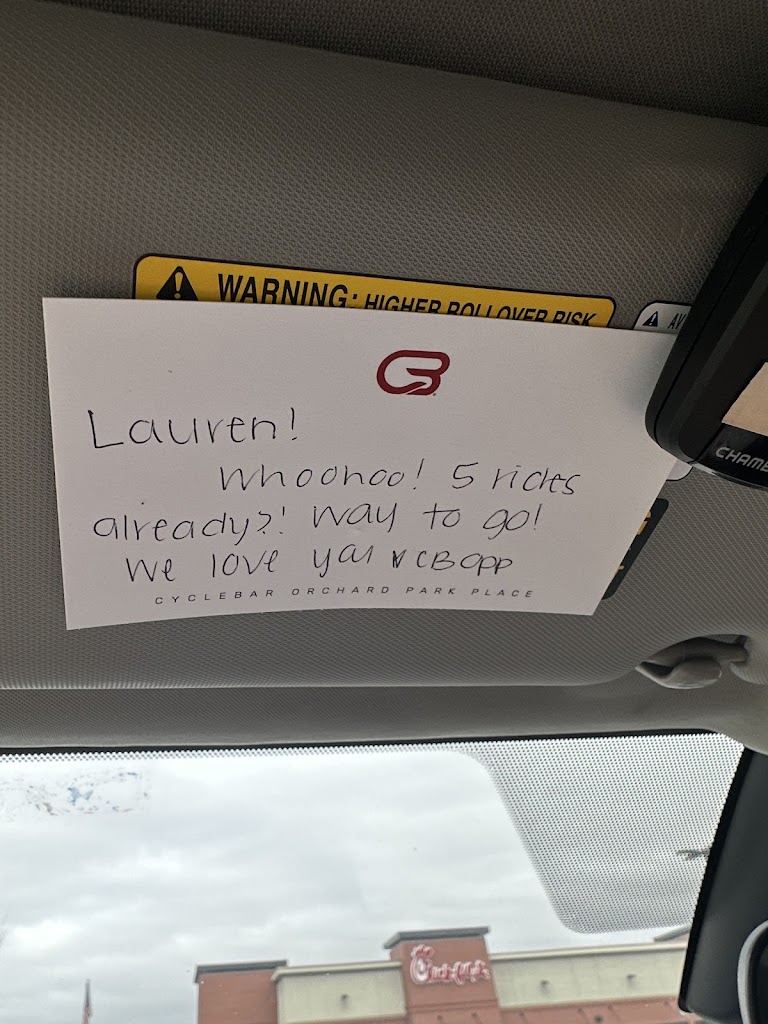 WARNING: HIGHER ROLLOVER RISK
AV
CB
Lauren!
Whoohoo! 5 rides
already?! Way to go!
We love ya! ♥ CBOPP
CYCLEBAR ORCHARD PARK PLACE
CHAMB
Chick-fil-A